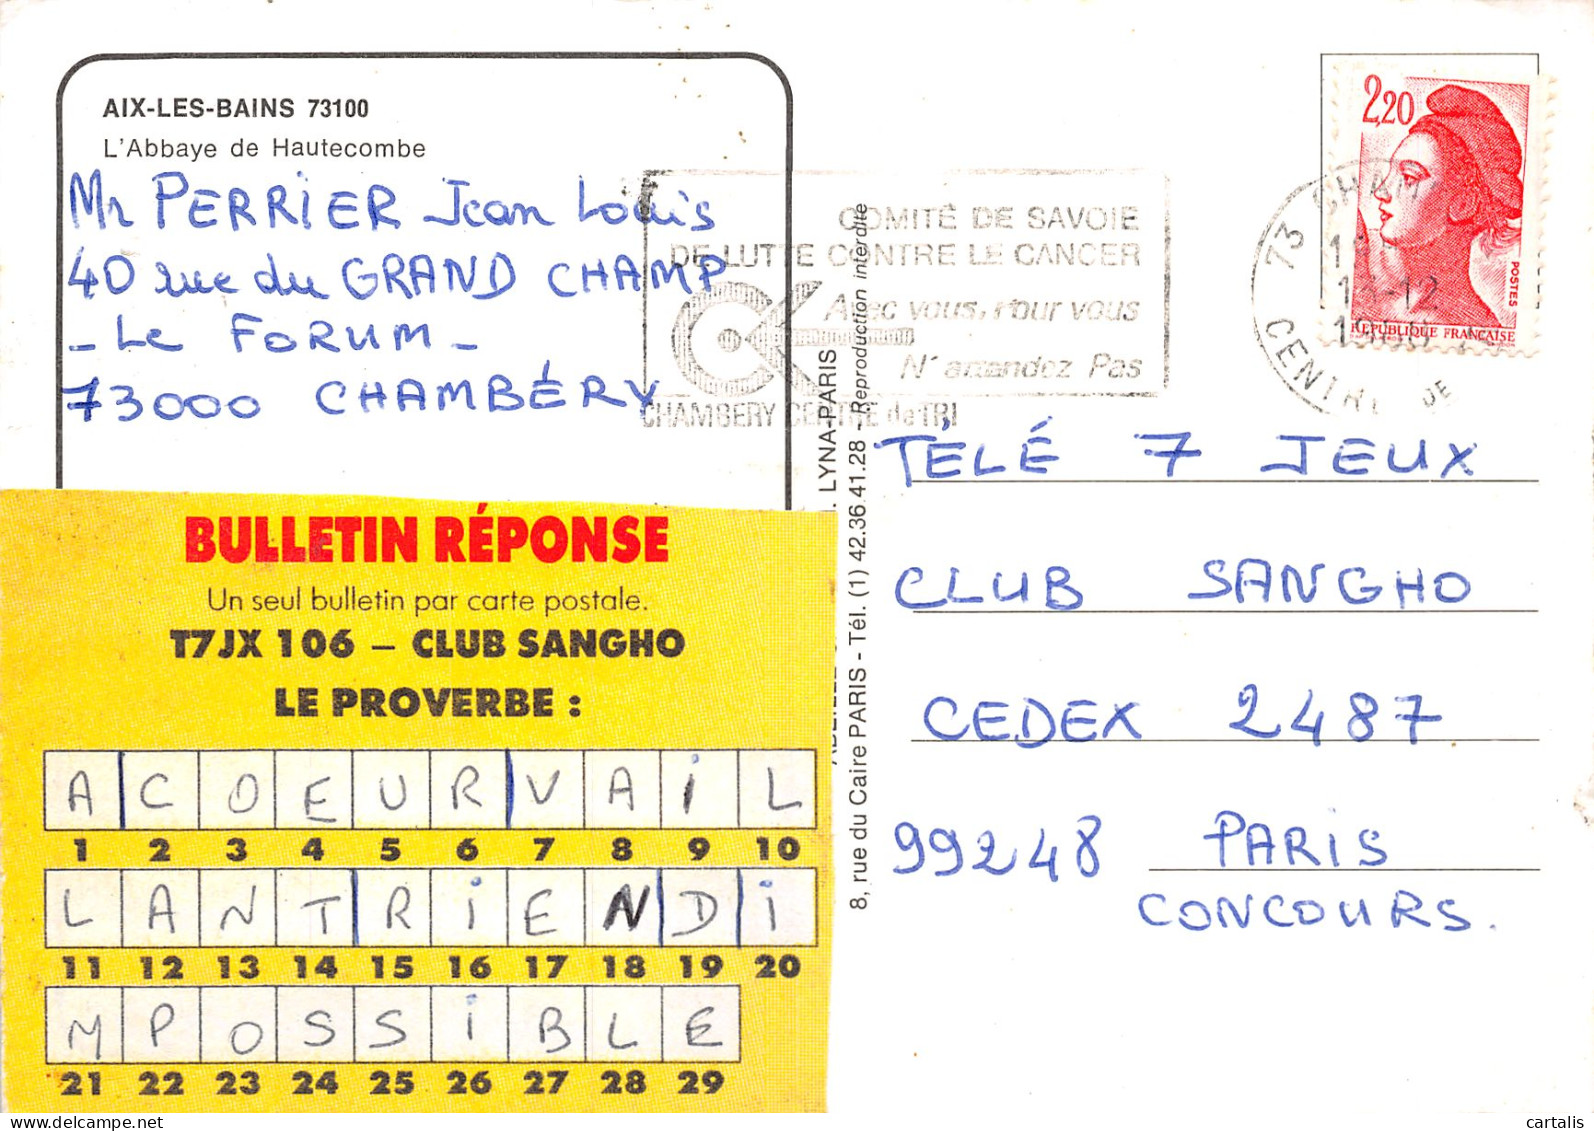 AIX-LES-BAINS 73100
L'Abbaye de Hautecombe
Mr PERRIER Jean Louis
40 rue du GRAND CHAMP
- Le FORUM -
73000 CHAMBÉRY
COMITÉ DE SAVOIE
DE LUTTE CONTRE LE CANCER
Avec vous, Pour vous
N'attendez Pas
CHAMBERY CENTRE de TRI
2,20
POSTES
REPUBLIQUE FRANÇAISE
73 CHAM
11-12
CENTR DE
LYNA-PARIS
8, rue du Caire PARIS - Tél. (1) 42.36.41.28 - Reproduction interdite
TÉLÉ 7 JEUX
CLUB SANGHO
CEDEX 2487
99248 PARIS
CONCOURS.
BULLETIN RÉPONSE
Un seul bulletin par carte postale.
T7JX 106 – CLUB SANGHO
LE PROVERBE :
A C O E U R V A i L
1 2 3 4 5 6 7 8 9 10
L A N T R i E N D i
11 12 13 14 15 16 17 18 19 20
M P O S S i B L E
21 22 23 24 25 26 27 28 29
cartalis